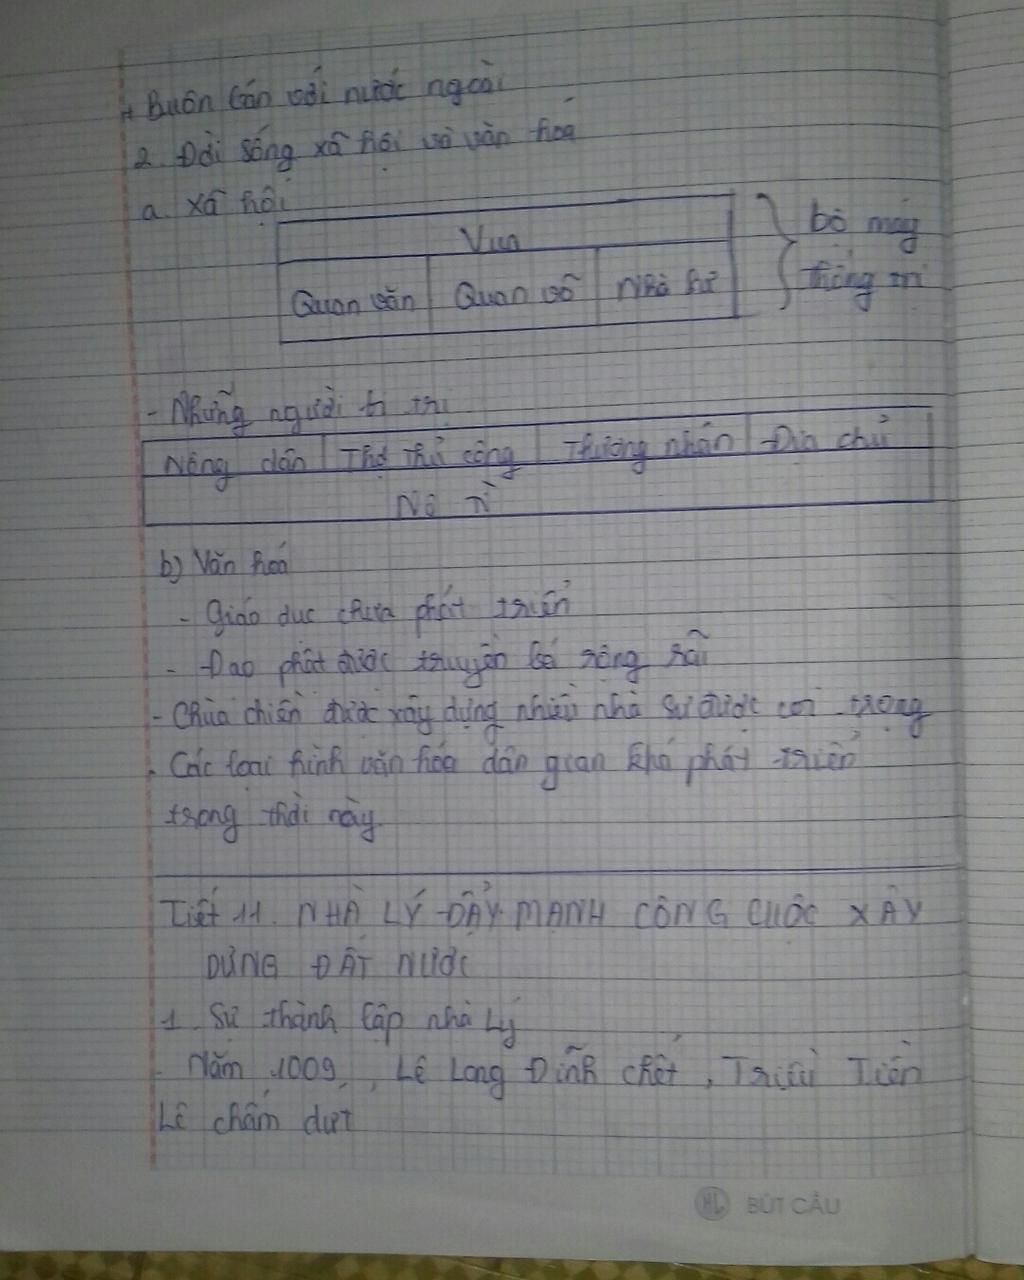 + Buôn bán với nước ngoài
2. Đời sống xã hội và văn hoá
a. Xã hội
Vua
Quan văn Quan võ Nhà sư
bộ máy
thống trị
- Những người bị trị
Nông dân Thợ thủ công Thương nhân Địa chủ
Nô tì
b) Văn hoá
- Giáo dục chưa phát triển
- Đạo phật được truyền bá rộng rãi
- Chùa chiền được xây dựng nhiều nhà sư được coi trọng
- Các loại hình văn hóa dân gian khá phát triển
trong thời này.
Tiết 11. NHÀ LÝ ĐẨY MẠNH CÔNG CUỘC XÂY
DỰNG ĐẤT NƯỚC
1. Sự thành lập nhà Lý
- Năm 1009, Lê Long Đĩnh chết, Triều Tiền
Lê chấm dứt
HL BÚT CÂU